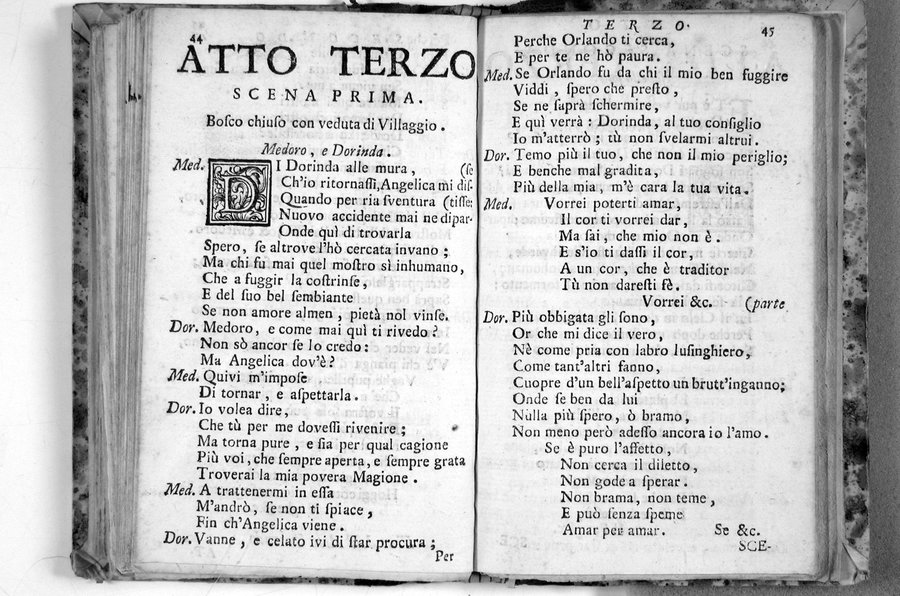 44
ATTO TERZO
SCENA PRIMA.
Bosco chiuso con veduta di Villaggio.
Medoro, e Dorinda.
Med. DI Dorinda alle mura, (se
Ch'io ritornassi, Angelica mi dis-
Quando per ria sventura (tisse;
Nuovo accidente mai ne dipar-
Onde quì di trovarla
Spero, se altrove l'hò cercata invano;
Ma chi fu mai quel mostro sì inhumano,
Che a fuggir la costrinse,
E del suo bel sembiante
Se non amore almen, pietà nol vinse.
Dor. Medoro, e come mai quì ti rivedo?
Non sò ancor se lo credo:
Ma Angelica dov'è?
Med. Quivi m'impose
Di tornar, e aspettarla.
Dor. Io volea dire,
Che tù per me dovessi rivenire;
Ma torna pure, e sia per qual cagione
Più voi, che sempre aperta, e sempre grata
Troverai la mia povera Magione.
Med. A trattenermi in essa
M'andrò, se non ti spiace,
Fin ch'Angelica viene.
Dor. Vanne, e celato ivi di star procura;
Per
TERZO.
45
Perche Orlando ti cerca,
E per te ne hò paura.
Med. Se Orlando fu da chi il mio ben fuggire
Viddi, spero che presto,
Se ne saprà schermire,
E quì verrà: Dorinda, al tuo consiglio
Io m'atterrò; tù non svelarmi altrui.
Dor. Temo più il tuo, che non il mio periglio;
E benche mal gradita,
Più della mia, m'è cara la tua vita.
Med. Vorrei poterti amar,
Il cor ti vorrei dar,
Ma sai, che mio non è.
E s'io ti dassi il cor,
A un cor, che è traditor
Tù non daresti fè.
Vorrei &c. (parte
Dor. Più obbigata gli sono,
Or che mi dice il vero,
Nè come pria con labro lusinghiero,
Come tant'altri fanno,
Cuopre d'un bell'aspetto un brutt'inganno;
Onde se ben da lui
Nulla più spero, ò bramo,
Non meno però adesso ancora io l'amo.
Se è puro l'affetto,
Non cerca il diletto,
Non gode a sperar.
Non brama, non teme,
E può senza speme
Amar per amar. Se &c.
SCE-